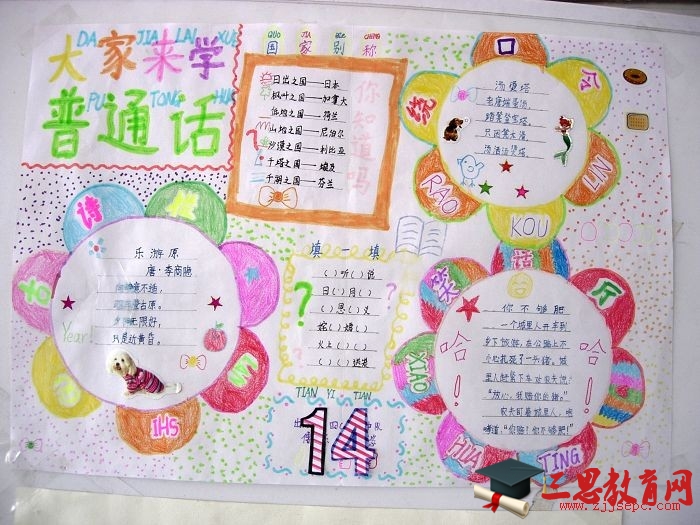 DA JIA LAI XUE
大家来学
PU TONG HUA
普通话
GUO JIA BIE CHENG
国家别称
日出之国——日本
枫叶之国——加拿大
低地之国——荷兰
山地之国——尼泊尔
沙漠之国——利比亚
千塔之国——埃及
千湖之国——芬兰
你知道吗
绕口令
RAO KOU LIN
汤烫塔
老唐端蛋汤,
踏凳登宝塔,
只因凳太滑,
汤洒汤烫塔。
诗
SHI
乐游原
唐·李商隐
向晚意不适,
驱车登古原。
夕阳无限好,
只是近黄昏。
Year!
填一填
( )听( )说
日( )月( )
( )思( )义
火上( )( )
TIAN YI TIAN
14
笑话厅
XIAO HUA TING
哈!
哈!
你不够肥
一个城里人开车到
乡下旅游,在公路上不
小心轧死了一头猪。城
里人赶紧下车对农夫说:
“放心,我赔你的猪。”
农夫盯着城里人,
嚷道:“你赔?你不够肥!”
三思教育网
www.zjjsepc.com